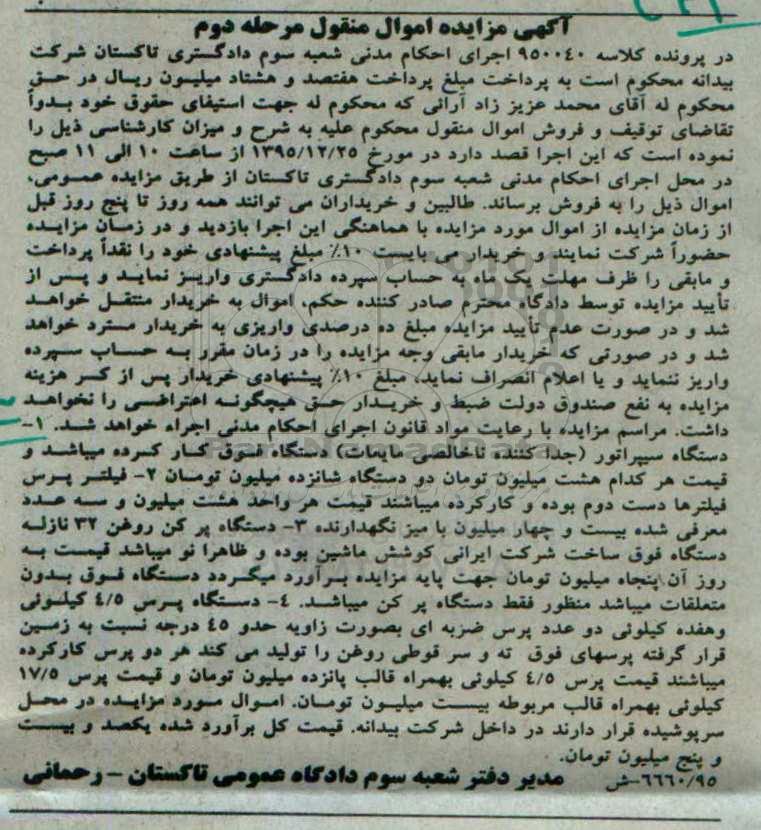 آگهی مزایده اموال منقول مرحله دوم
در پرونده کلاسه ۹۵۰۰۴۰ اجرای احکام مدنی شعبه سوم دادگستری تاکستان شرکت
بیدانه محکوم است به پرداخت مبلغ پرداخت هفتصد و هشتاد میلیون ریال در حق
محکوم له آقای محمد عزیز زاد آرانی که محکوم له جهت استیفای حقوق خود بدواً
تقاضای توقیف و فروش اموال منقول محکوم علیه به شرح و میزان کارشناسی ذیل را
نموده است که این اجرا قصد دارد در مورخ ۱۳۹۵/۱۲/۲۵ از ساعت ۱۰ الی ۱۱ صبح
در محل اجرای احکام مدنی شعبه سوم دادگستری تاکستان از طریق مزایده عمومی،
اموال ذیل را به فروش برساند. طالبین و خریداران می توانند همه روز تا پنج روز قبل
از زمان مزایده از اموال مورد مزایده با هماهنگی این اجرا بازدید و در زمان مزایده
حضوراً شرکت نمایند و خریدار می بایست ۱۰٪ مبلغ پیشنهادی خود را نقداً پرداخت
و مابقی را ظرف مهلت یک ماه به حساب سپرده دادگستری واریز نماید و پس از
تأیید مزایده توسط دادگاه محترم صادر کننده حکم، اموال به خریدار منتقل خواهد
شد و در صورت عدم تأیید مزایده مبلغ ده درصدی واریزی به خریدار مسترد خواهد
شد و در صورتی که خریدار مابقی وجه مزایده را در زمان مقرر به حساب سپرده
واریز ننماید و یا اعلام انصراف نماید، مبلغ ۱۰٪ پیشنهادی خریدار پس از کسر هزینه
مزایده به نفع صندوق دولت ضبط و خریدار حق هیچگونه اعتراضی را نخواهد
داشت. مراسم مزایده با رعایت مواد قانون اجرای احکام مدنی اجراء خواهد شد. ۱-
دستگاه سپراتور (جدا کننده ناخالصی مایعات) دستگاه فوق کار کرده میباشد و
قیمت هر کدام هشت میلیون تومان دو دستگاه شانزده میلیون تومان ۲- فیلتر پرس
فیلترها دست دوم بوده و کارکرده میباشند قیمت هر واحد هشت میلیون و سه عدد
معرفی شده بیست و چهار میلیون با میز نگهدارنده ۳- دستگاه پر کن روغن ۳۲ نازله
دستگاه فوق ساخت شرکت ایرانی کوشش ماشین بوده و ظاهرا نو میباشد قیمت به
روز آن پنجاه میلیون تومان جهت پایه مزایده برآورد میگردد دستگاه فوق بدون
متعلقات میباشد منظور فقط دستگاه پر کن میباشد. ۴- دستگاه پرس ۴/۵ کیلوئی
وهفده کیلوئی دو عدد پرس ضربه ای بصورت زاویه حدو ۴۵ درجه نسبت به زمین
قرار گرفته پرسهای فوق ته و سر قوطی روغن را تولید می کند هر دو پرس کارکرده
میباشند قیمت پرس ۴/۵ کیلوئی بهمراه قالب پانزده میلیون تومان و قیمت پرس ۱۷/۵
کیلوئی بهمراه قالب مربوطه بیست میلیون تومان. اموال مورد مزایده در محل
سرپوشیده قرار دارند در داخل شرکت بیدانه. قیمت کل برآورد شده یکصد و بیست
و پنج میلیون تومان.
۶۶۶۰/۹۵-ش مدیر دفتر شعبه سوم دادگاه عمومی تاکستان - رحمانی